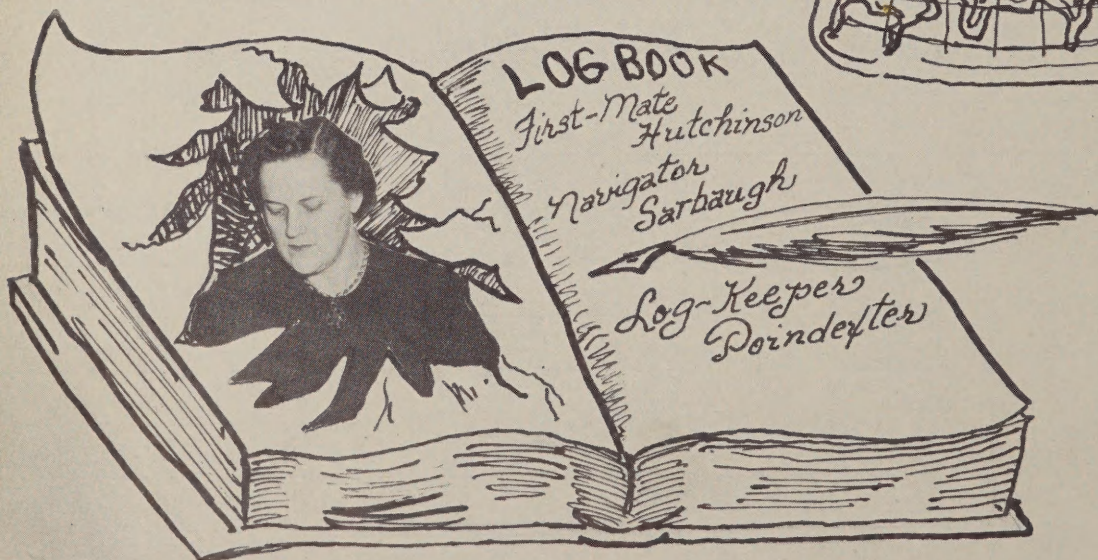 LOG BOOK
First-Mate
Hutchinson
Navigator
Sarbaugh
Log-Keeper
Poindexter